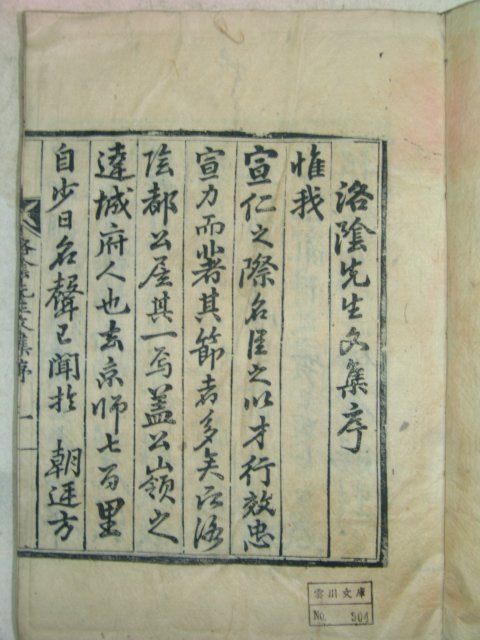 洛陰先生文集序
惟我
宣仁之際名臣之以才行效忠
宣力而著其節者多矣而洛
陰都公居其一焉蓋公嶺之
達城府人也去京師七百里
自少日名聲已聞於 朝廷方
洛陰先生文集序 一
雲川文庫
No. 304